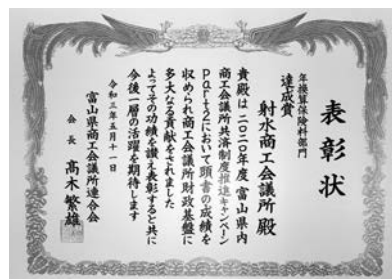 表彰状
年換算保険料部門
達成賞
射水商工会議所殿
貴殿は二〇二〇年度富山県内
商工会議所共済制度推進キャンペーン
Part2において頭書の成績を
収められ商工会議所財政基盤に
多大なる貢献をされました
よってその功績を讃え表彰すると共に
今後一層の活躍を期待します
令和三年五月十一日
富山県商工会議所連合会
会長 髙木繁雄